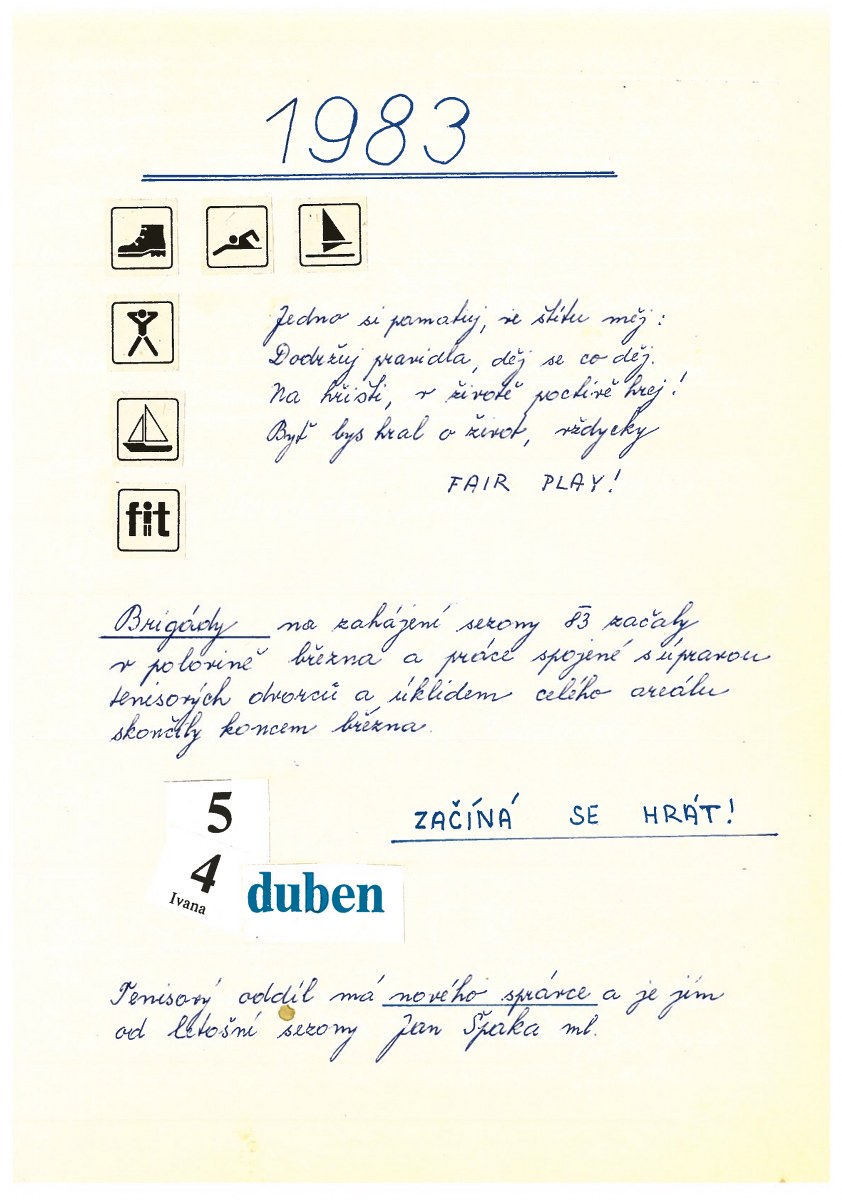 1983
Jedno si pamatuj, ve štítu měj:
Dodržuj pravidla, děj se co děj.
Na hřišti, v životě poctivě hrej!
Byť bys hrál o život, vždycky
FAIR PLAY!
fit
Brigády na zahájení sezony 83 začaly
v polovině března a práce spojené s úpravou
tenisových dvorců a úklidem celého areálu
skončily koncem března.
5
ZAČÍNÁ SE HRÁT!
4
Ivana
duben
Tenisový oddíl má nového správce a je jím
od letošní sezony Jan Špaka ml.